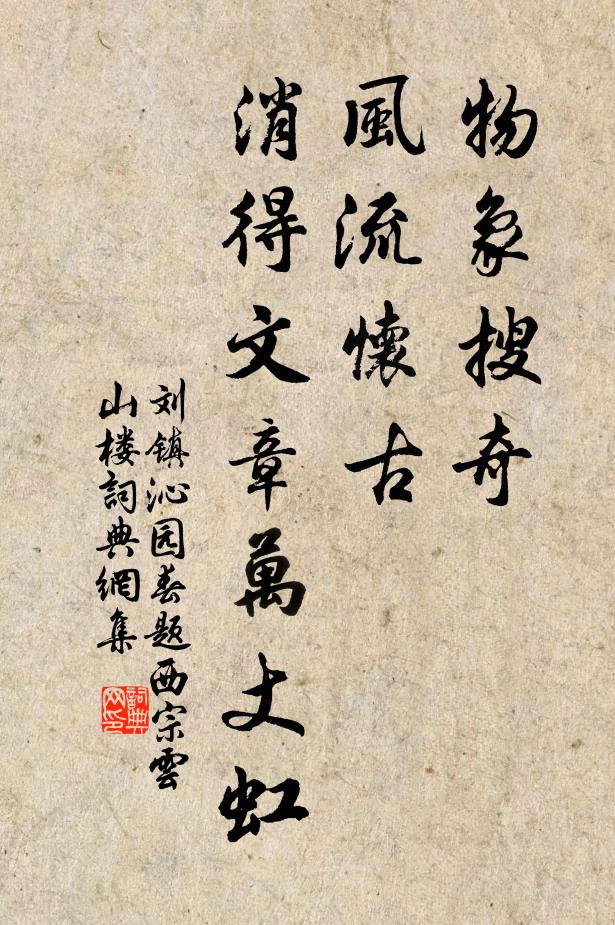 物象搜奇
風流懷古
消得文章萬丈虹
刘镇沁园春题西宗雲
山楼詞典網集
詞典
网印